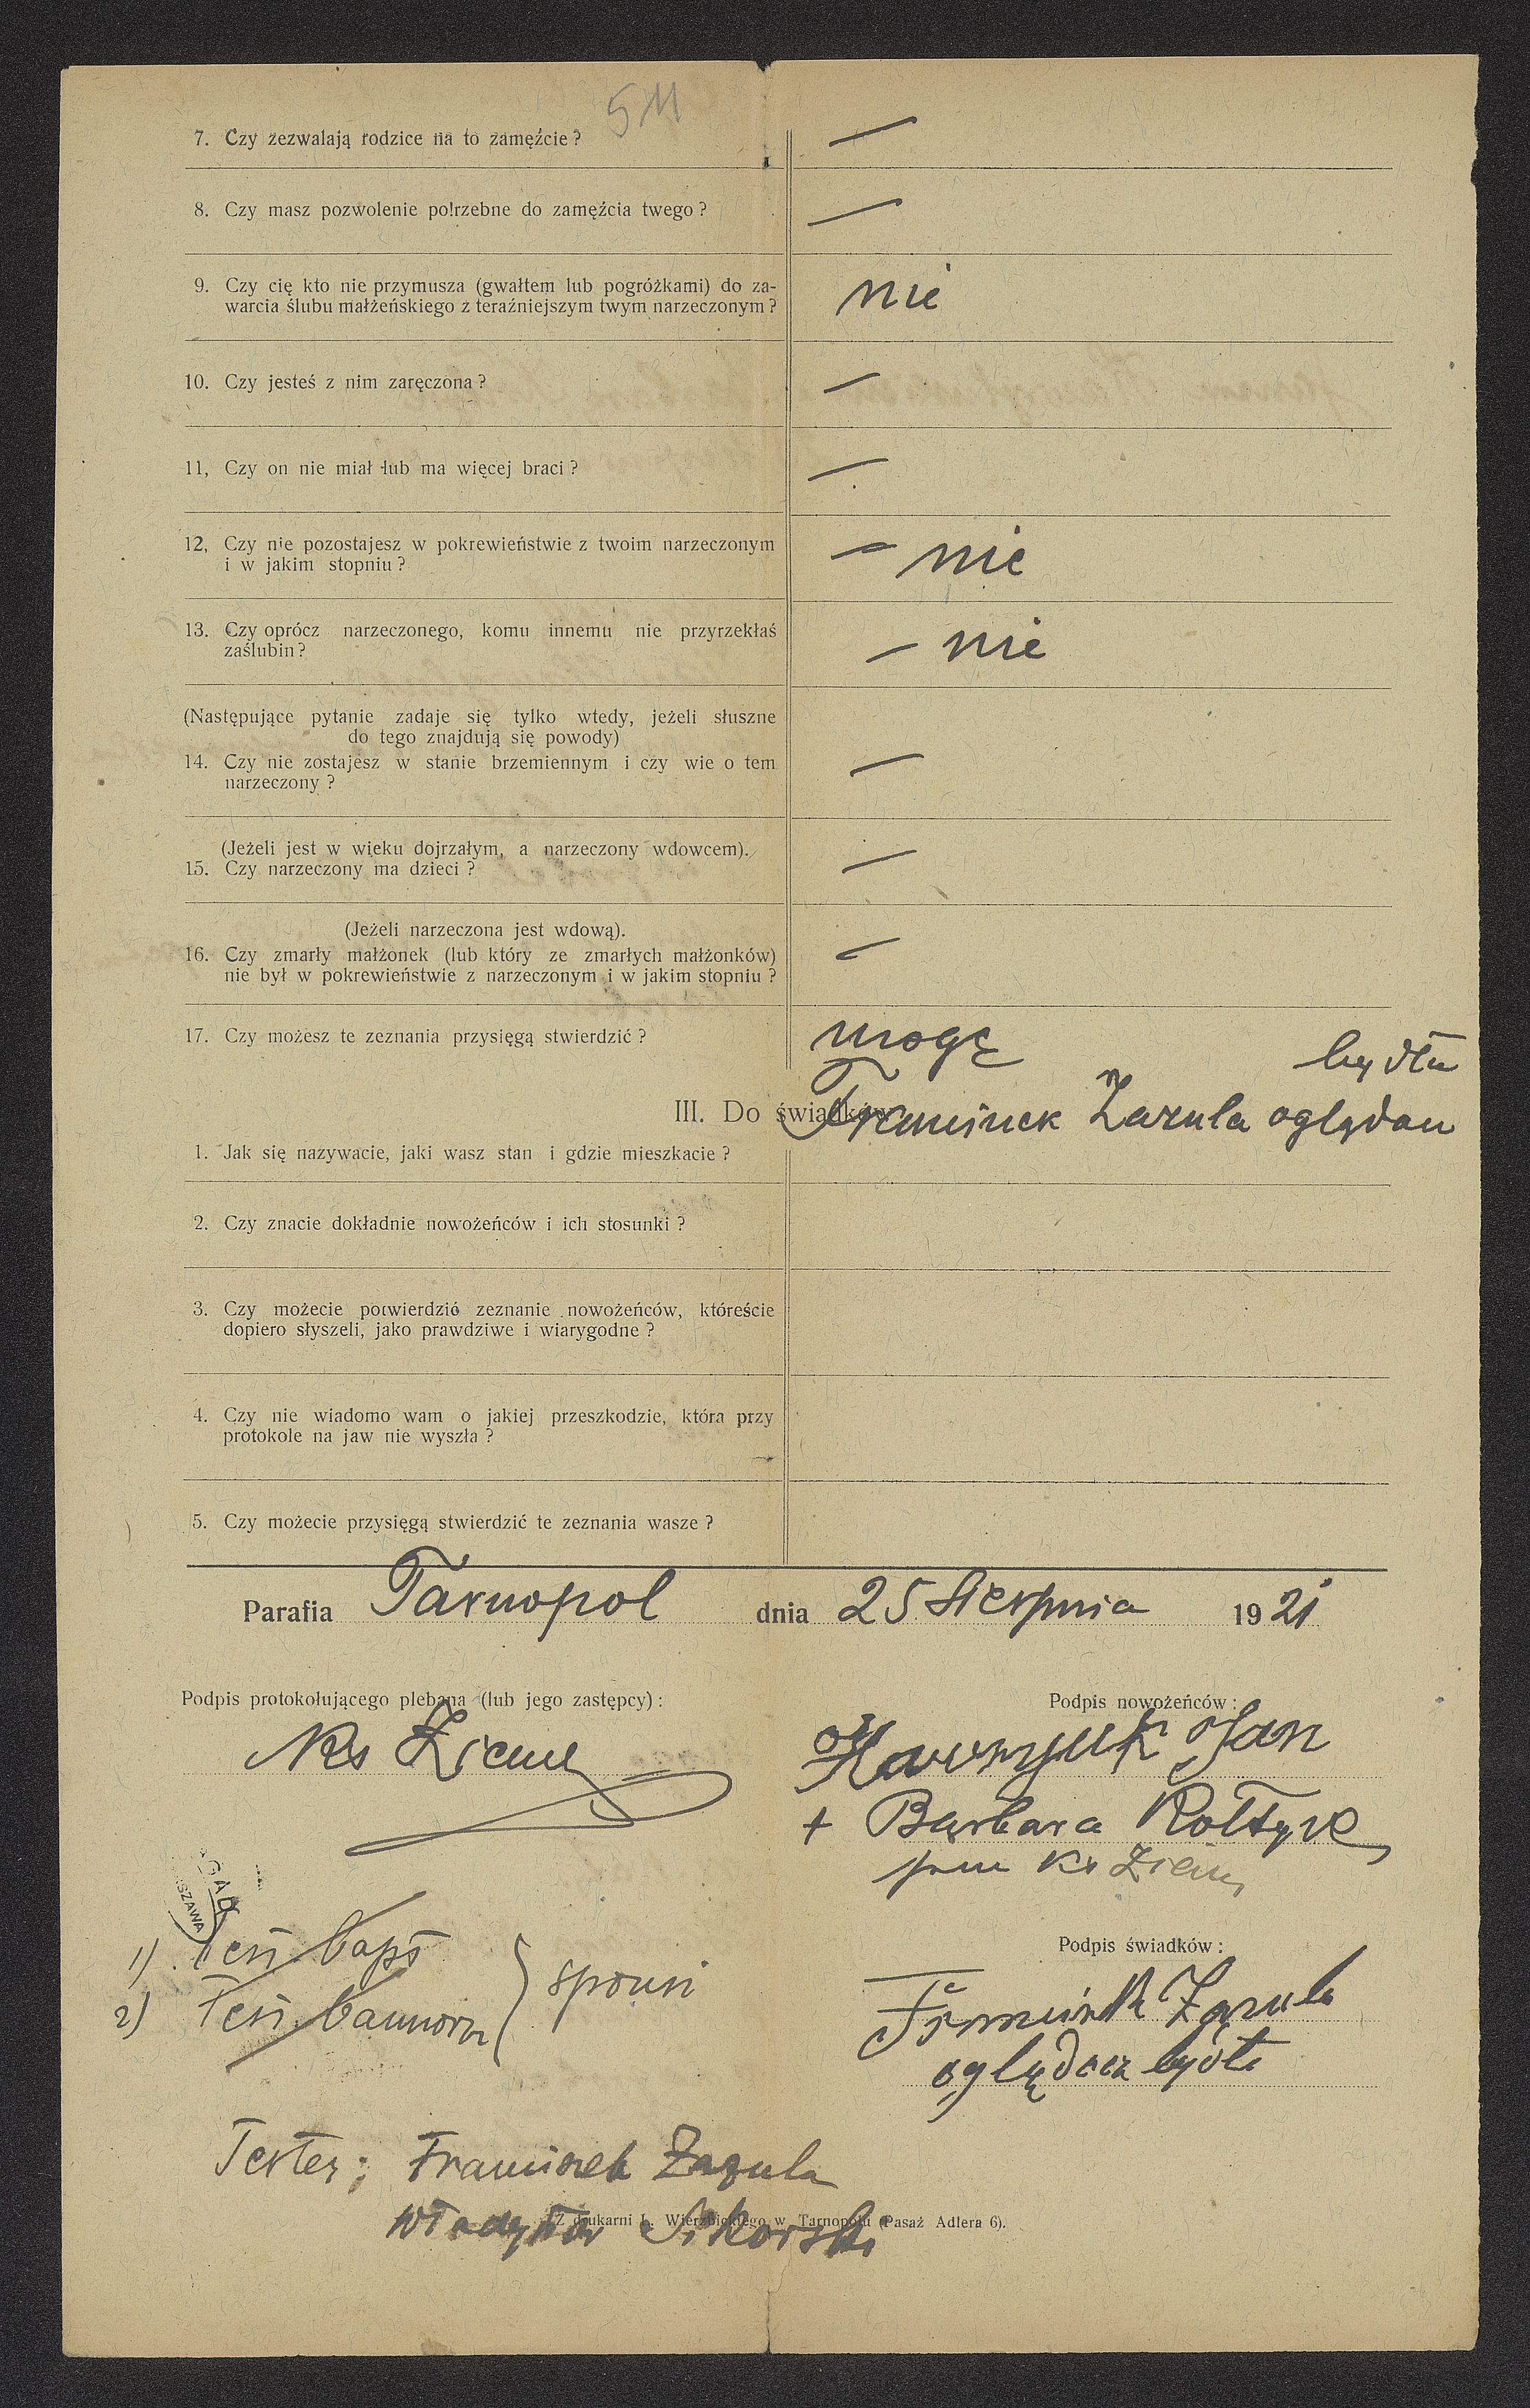 511
7. Czy zezwalają rodzice na to zamęźcie? —
8. Czy masz pozwolenie potrzebne do zamęźcia twego? —
9. Czy cię kto nie przymusza (gwałtem lub pogróżkami) do za-
warcia ślubu małżeńskiego z teraźniejszym twym narzeczonym? nie
10. Czy jesteś z nim zaręczona? —
11, Czy on nie miał lub ma więcej braci? —
12, Czy nie pozostajesz w pokrewieństwie z twoim narzeczonym
i w jakim stopniu? — nie
13. Czy oprócz narzeczonego, komu innemu nie przyrzekłaś
zaślubin? — nie
(Następujące pytanie zadaje się tylko wtedy, jeżeli słuszne
do tego znajdują się powody)
14. Czy nie zostajesz w stanie brzemiennym i czy wie o tem
narzeczony? —
(Jeżeli jest w wieku dojrzałym, a narzeczony wdowcem).
15. Czy narzeczony ma dzieci? —
(Jeżeli narzeczona jest wdową).
16. Czy zmarły małżonek (lub który ze zmarłych małżonków)
nie był w pokrewieństwie z narzeczonym i w jakim stopniu? —
17. Czy możesz te zeznania przysięgą stwierdzić? mogę
bydła
III. Do świadków
Franciszek Zazula oglądacz
1. Jak się nazywacie, jaki wasz stan i gdzie mieszkacie?
2. Czy znacie dokładnie nowożeńców i ich stosunki?
3. Czy możecie potwierdzić zeznanie nowożeńców, któreście
dopiero słyszeli, jako prawdziwe i wiarygodne?
4. Czy nie wiadomo wam o jakiej przeszkodzie, która przy
protokole na jaw nie wyszła?
5. Czy możecie przysięgą stwierdzić te zeznania wasze?
Parafia Tarnopol dnia 25 Sierpnia 1921
Podpis protokołującego plebana (lub jego zastępcy):
Podpis nowożeńców:
Ks
Jan
+ Barbara Kołtyk
Ks
1) Test. bapt
2) Test. bannorum
} sponsi
Podpis świadków:
Franciszek Zazula
oglądacz bydła
Testes; Franciszek Zazula
Władysław Sikorski
Z drukarni L. Wierzbickiego w Tarnopolu (Pasaż Adlera 6).